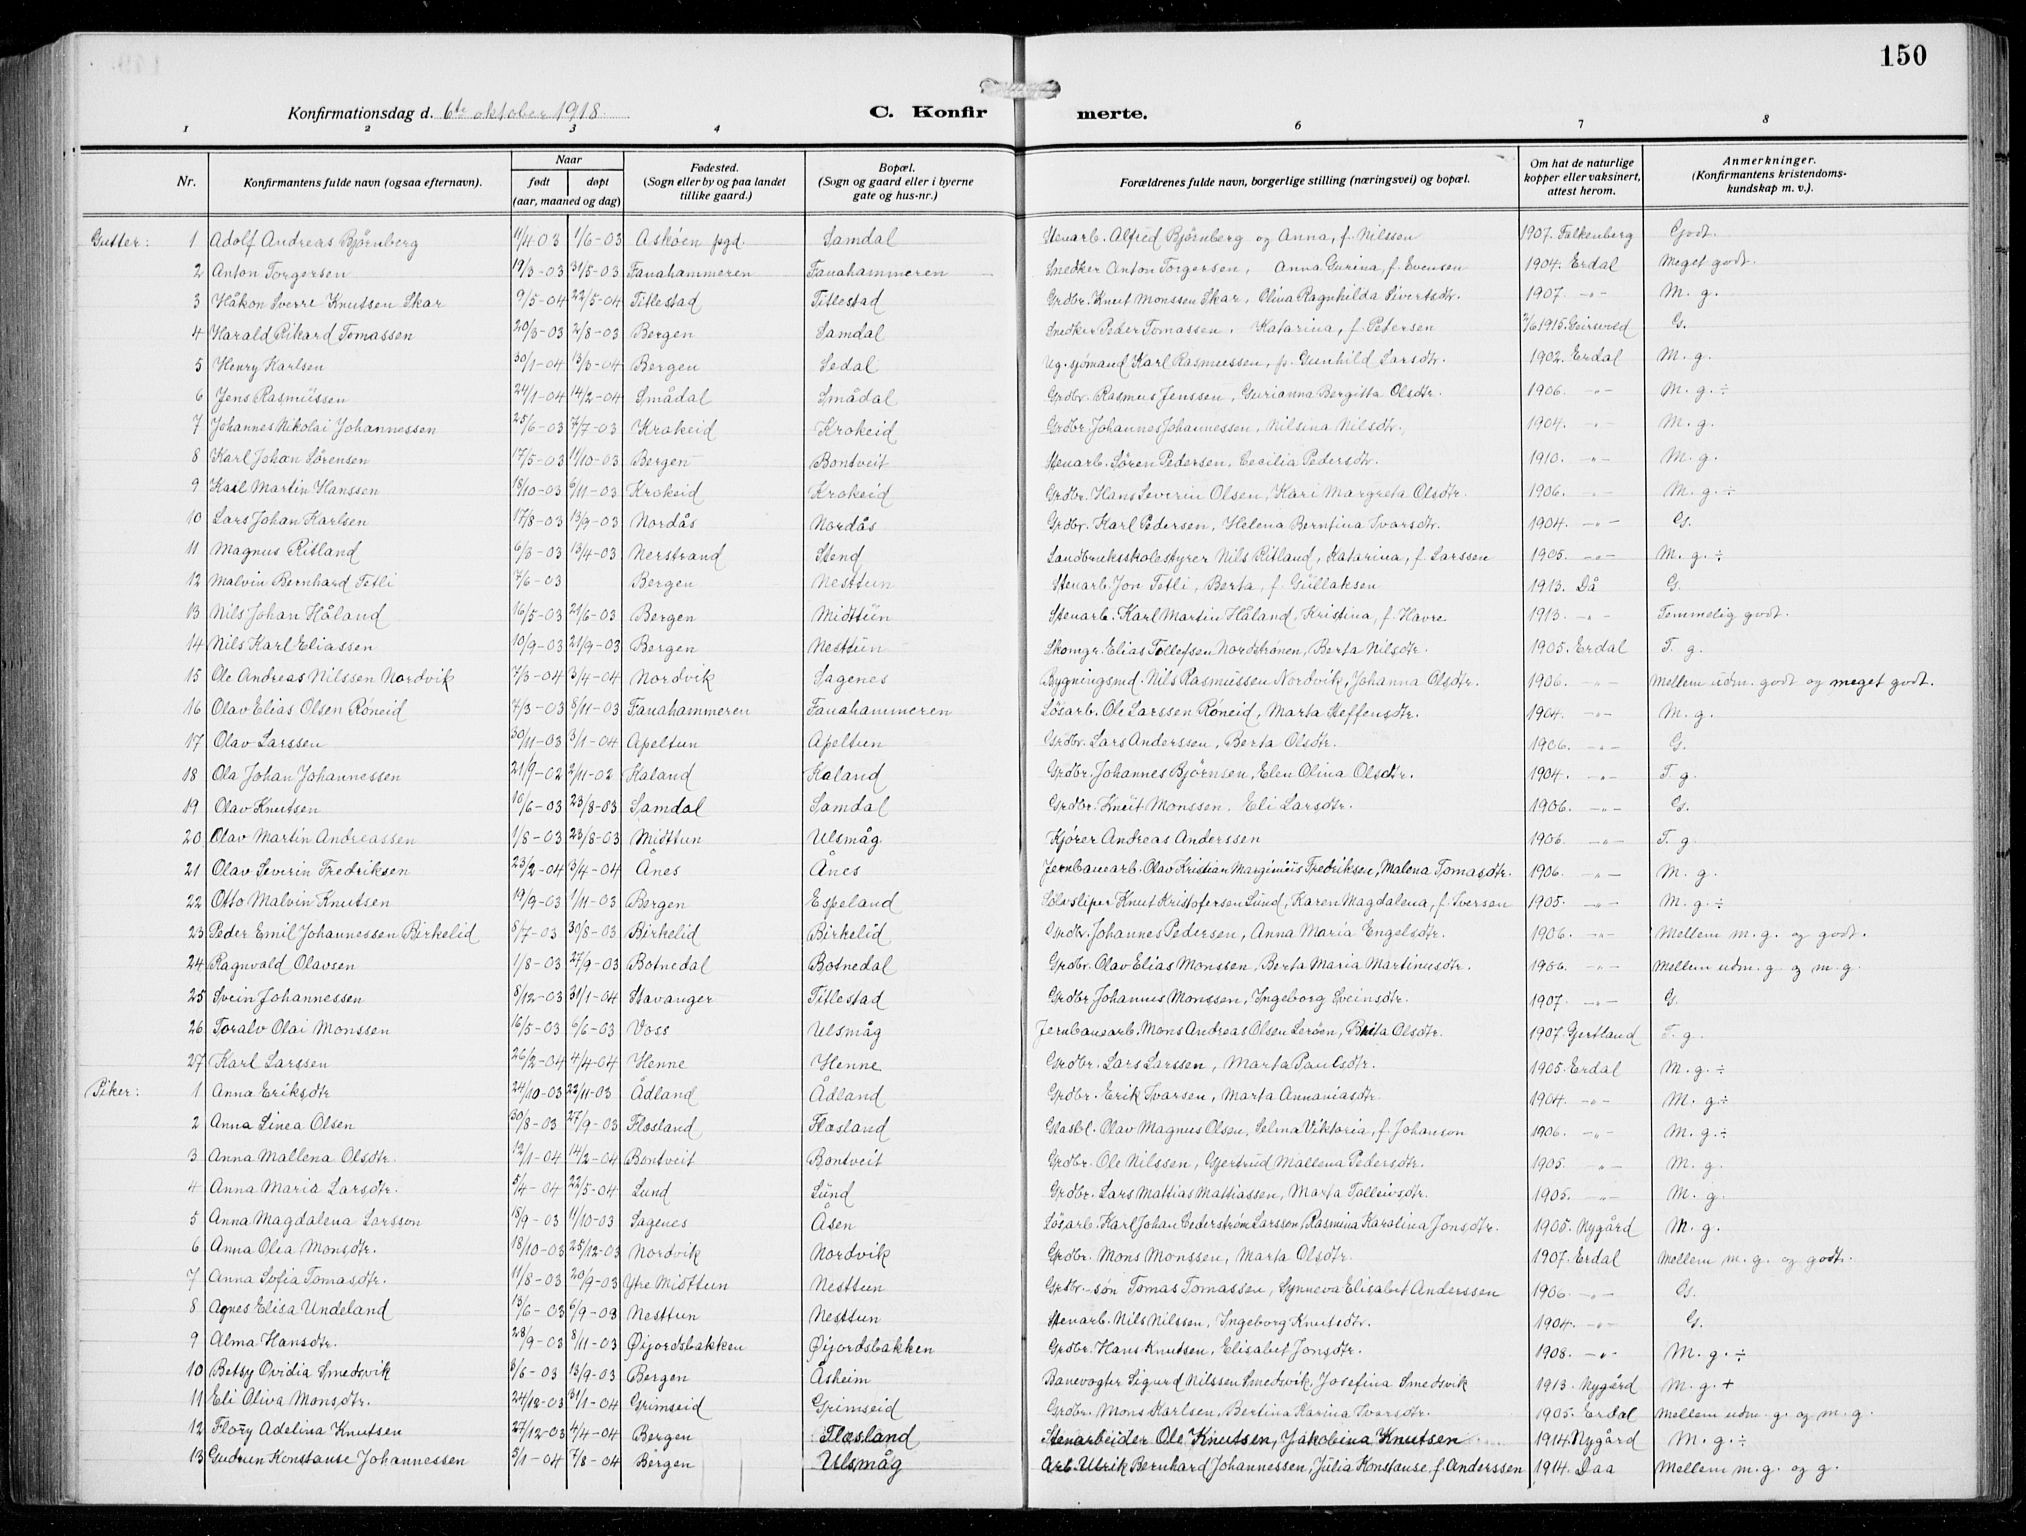 150
Konfirmationsdag d. 6te oktober 1918 C. Konfir merte.
1 2 3 4 6 7 8
Nr. Konfirmantens fulde navn (ogsaa efternavn). Naar født døpt (aar, maaned og dag) Fødested. (Sogn eller by og paa landet tillike gaard.) Bopæl. (Sogn og gaard eller i byerne gate og hus-nr.) Forældrenes fulde navn, borgerlige stilling (næringsvei) og bopæl. Om hat de naturlige kopper eller vaksinert, attest herom. Anmerkninger. (Konfirmantens kristendomskundskap m. v.).
Gutter: 1 Adolf Andreas Bjørnberg 11/4 03 1/6-03 Askøen pgd. Samdal Stenarb. Alfred Bjørnberg og Anna, f. Nilssen 1907. Falkenberg Godt.
2 Anton Torgersen 19/3-03 31/5-03 Fanahammeren Fanahammeren Snedker Anton Torgersen, Anna Gurina, f. Evensen 1904. Erdal Meget godt.
3 Håkon Sverre Knutsen Skar 9/5-04 22/5-04 Titlestad Titlestad Grdbr. Knut Monssen Skar, Olina Ragnhilda Sivertsdtr. 1907. -"- M. g.
4 Harald Rikard Tomassen 20/3-03 2/8-03 Bergen Samdal Snedker Peder Tomassen, Katarina, f. Petersen 2/6 1915. Geirsvold G.
5 Henry Karlsen 30/1-04 13/3-04 Bergen Sedal Ug. sjømand Karl Rasmussen, p. Gunhild Larsdtr. 1902. Erdal M. g.
6 Jens Rasmussen 24/1-04 14/2-04 Smådal Smådal Grdbr. Rasmus Jenssen, Gurianna Bergitta Olsdtr. 1906. -"- M. g. ÷
7 Johannes Nikolai Johannessen 25/6-03 7/7-03 Krokeid Krokeid Grdbr. Johannes Johannessen, Nilsina Nilsdtr. 1904. -"- M. g.
8 Karl Johan Sørensen 17/5-03 11/10-03 Bergen Bontveit Stenarb. Søren Pedersen, Cecilia Pedersdtr. 1910. -"- M. g.
9 Karl Martin Hanssen 18/10-03 6/11-03 Krokeid Krokeid Grdbr. Hans Severin Olsen, Kari Margreta Olsdtr. 1906. -"- M. g. ÷
10 Lars Johan Karlsen 17/8-03 13/9-03 Nordås Nordås Grdbr. Karl Pedersen, Helena Berntina Ivarsdtr. 1904. -"- G.
11 Magnus Ritland 6/3-03 13/4-03 Nerstrand Stend Landbruksskolestyrer Nils Ritland, Katarina, f. Larssen 1905. -"- M. g. ÷
12 Malvin Bernhard Tetli 7/6-03 Bergen Nesttun Stenarb. Jon Tetli, Berta, f. Gullaksen 1913. Då G.
13 Nils Johan Håland 16/5-03 21/6-03 Bergen Midttun Stenarb. Karl Martin Håland, Kristina, f. Havre 1913. -"- Temmelig godt.
14 Nils Karl Eliassen 10/9-03 21/9-03 Bergen Nesttun Skomgr. Elias Tollefsen Nordstrønen, Berta Nilsdtr. 1905. Erdal T. g.
15 Ole Andreas Nilssen Nordvik 7/3-04 3/4-04 Nordvik Sagenes Bygningsmd. Nils Rasmussen Nordvik, Johanna Olsdtr. 1906. -"- Mellem udm. godt og meget godt.
16 Olav Elias Olsen Røneid 7/3-03 8/11-03 Fanahammeren Fanahammeren Løsarb. Ole Larssen Røneid, Marta Steffensdtr. 1904. -"- M. g.
17 Olav Larssen 30/11-03 3/1-04 Apeltun Apeltun Grdbr. Lars Anderssen, Berta Olsdtr. 1906. -"- G.
18 Ola Johan Johannessen 21/9-02 2/11-02 Kaland Kaland Grdbr. Johannes Bjørnsen, Elen Olina Olsdtr. 1904. -"- T. g.
19 Olav Knutsen 10/6-03 23/8-03 Samdal Samdal Grdbr. Knut Monssen. Eli Larsdtr. 1906. -"- G.
20 Olav Martin Andreassen 1/8-03 23/8-03 Midttun Ulsmåg Kjører Andreas Anderssen 1906. -"- T. g
21 Olav Severin Fredriksen 23/2-04 3/4-04 Ånes Ånes Jernbanearb. Olav Kristian Marginius Fredriksen, Malena Tomasdtr. 1906. -"- M. g.
22 Otto Malvin Knutsen 19/9-03 1/11-03 Bergen Espeland Sølvsliper Knut Kristofersen Lund, Karen Magdalena, f. Iversen 1905. -"- M. g. ÷
23 Peder Emil Johannessen Birkelid 8/7-03 30/8-03 Birkelid Birkelid Grdbr. Johannes Pedersen, Anna Maria Engelsdtr. 1906. -"- Mellem m. g. og godt.
24 Ragnvald Olavsen 1/8-03 27/9-03 Botnedal Botnedal Grdbr. Olav Elias Monssen, Berta Maria Martinusdtr. 1906. -"- Mellem udm. g og m. g.
25 Svein Johannessen 8/12-03 31/1-04 Stavanger Titlestad Grdbr. Johannes Monssen, Ingeborg Sveinsdtr. 1907. -"- G.
26 Toralv Olai Monssen 16/5-03 6/6-03 Voss Ulsmåg Jernbanearb. Mons Andreas Olsen Lerøen, Brita Olsdtr. 1907. Gjertland T. g.
27 Karl Larssen 26/2-04 4/4-04 Henne Henne Grdbr. Lars Larssen, Marta Paulsdtr. 1905. Erdal M. g. ÷
Piker: 1 Anna Eriksdtr 24/10-03 22/11-03 Ådland Ådland Grdbr. Erik Ivarsen, Marta Annaniasdtr. 1904. -"- M. g ÷
2 Anna Linea Olsen 30/8-03 27/9-03 Flesland Flesland Glasbl. Olav Magnus Olsen, Selma Viktoria, f. Johanson 1906. -"- M. g. ÷
3 Anna Mallena Olsdtr. 12/1-04 14/2-04 Bontveit Bontveit Grdbr. Ole Nilssen, Gjertrud Mallena Pedersdtr. 1905. -"- M. g.
4 Anna Maria Larsdtr. 5/4-04 22/5-04 Lund Lund Grdbr. Lars Mattias Mattiassen, Marta Talleivsdtr. 1905. -"- M. g.
5 Anna Magdalena Larsson 18/9-03 11/10-03 Sagenes Åsen Løsarb. Karl Johan Cederstrøm Larsson, Rasmina Karolina Jonsdtr. 1905. Nygård M. g.
6 Anna Olea Monsdtr. 18/10-03 25/12-03 Nordvik Nordvik Grdbr. Mons Monssen, Marta Olsdtr. 1907. Erdal Mellem m. g. og godt.
7 Anna Sofia Tomasdtr. 11/8-03 20/9-03 Ytre Midttun Nesttun Grdbr-søn Tomas Tomassen, Synneva Elisabet Anderssen 1906. -"- G.
8 Agnes Elisa Undeland 13/6-03 6/9-03 Nesttun Nesttun Stenarb. Nils Nilssen, Ingeborg Knutsdtr. 1904. -"- G.
9 Alma Hansdtr. 28/9-03 8/11-03 Øijordsbakken Øijordsbakken Grdbr. Hans Knutsen, Elisabet Jonsdtr. 1908. -"- M. g. ÷
10 Betsy Ovidia Smedsvik 3/6-03 13/9-03 Bergen Åsheim Banevogter Sigurd Nilssen Smedsvik, Josefina Smedsvik 1913. Nygård M. g. +
11 Eli Oliva Monsdtr. 24/12-03 31/1-04 Grimseid Grimseid Grdbr. Mons Karlsen, Bertina Karina Ivarsdtr. 1905. Erdal Mellem udm. g. og m. g.
12 Flory Adelina Knutsen 27/12-03 4/4-04 Bergen Flesland Stenarbeider Ole Knutsen, Jakobina Knutsen 1914. Nygård M. g. ÷
13 Gudrun Konstanse Johannessen 5/1-04 7/8-04 Bergen Ulsmåg Arb. Ulrik Bernhard Johannessen, Julia Konstanse, f. Anderssen 1914. Daa Mellem m. g. og g.